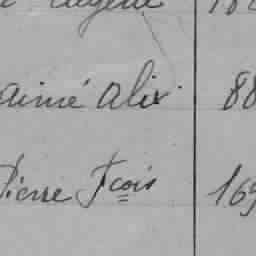 aimé Alix 88
Pierre Fcois 169